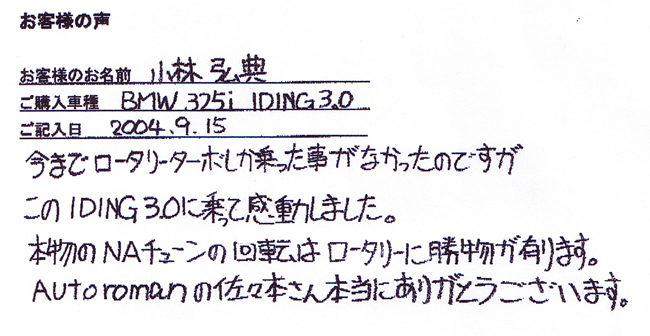 お客様の声
お客様のお名前 小林弘典
ご購入車種 BMW 325i IDING3.0
ご記入日 2004.9.15
今までロータリーターボしか乗った事がなかったのですが
このIDING3.0に乗って感動しました。
本物のNAチューンの回転はロータリーに勝物が有ります。
Autoromanの佐々本さん本当にありがとうございます。